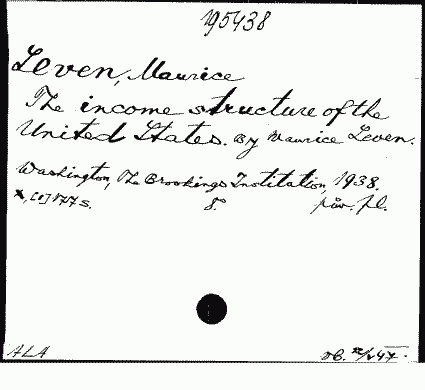 195438
Leven, Maurice
The income structure of the
United States. By Maurice Leven.
Washington, The Brookings Institution, 1938.
X, [0] 177 s. 8°.
ALA